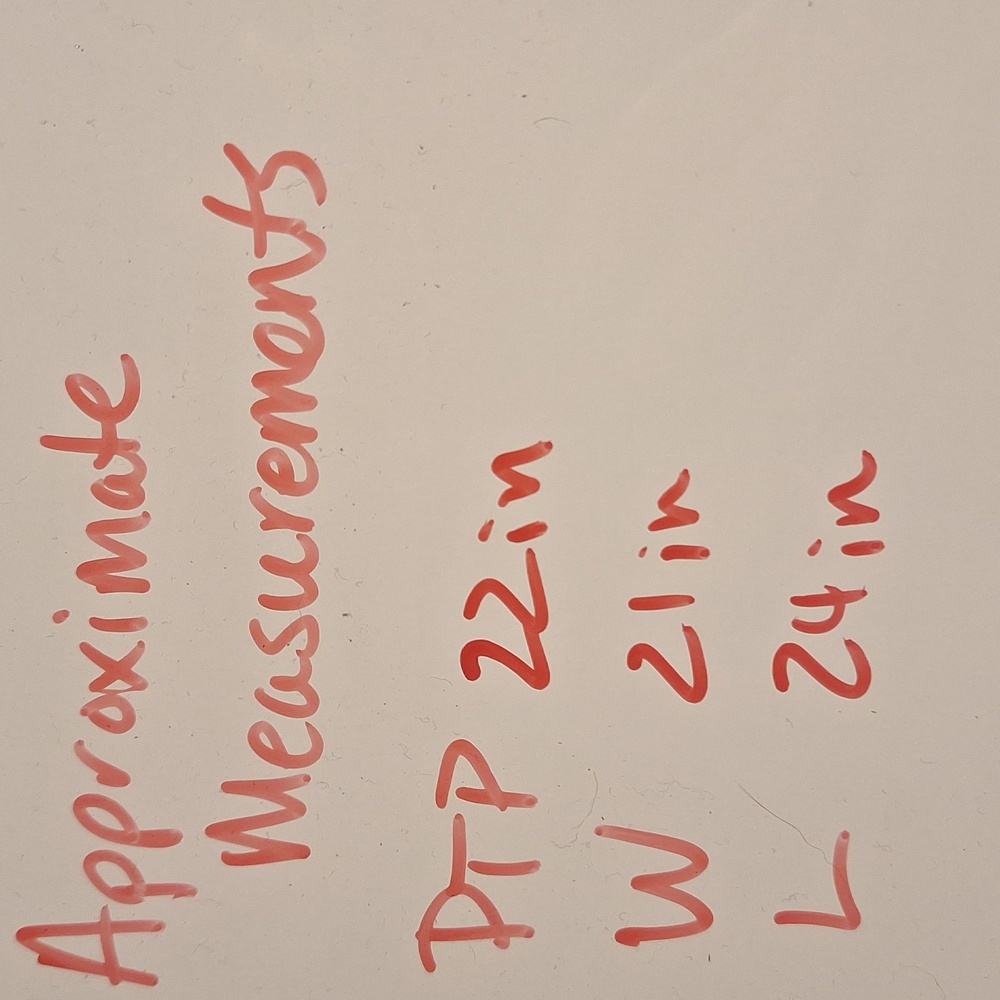 Approximate
Measurements
PTP 22in
W 21in
L 24in